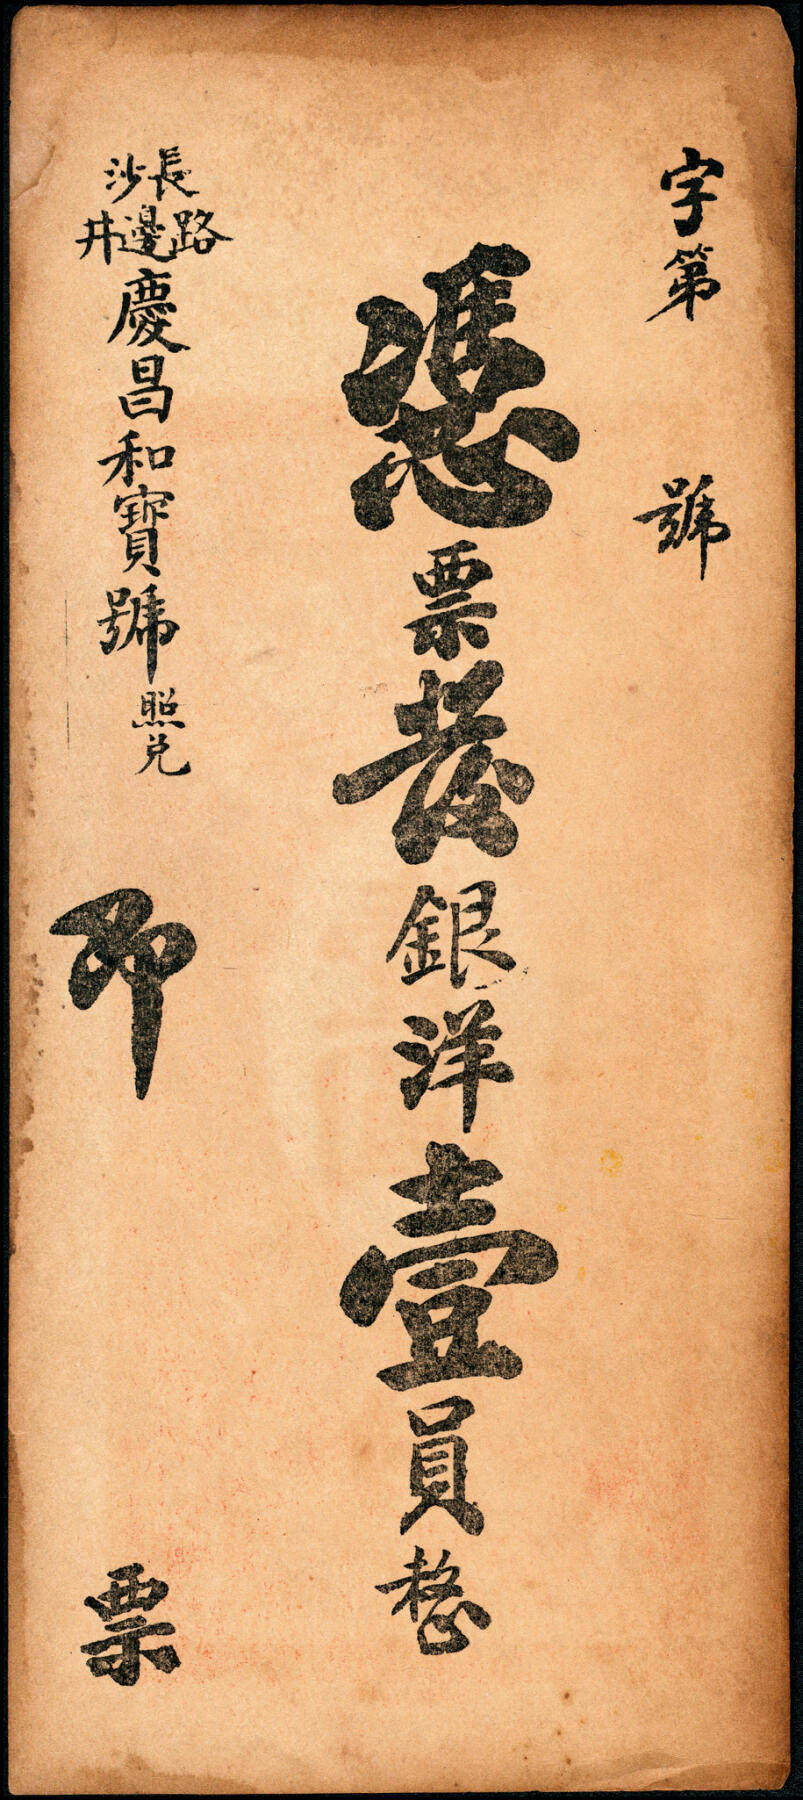 字第 號
憑票發銀洋壹員整
長沙
路邊井
慶昌和寶號照兑
即 票